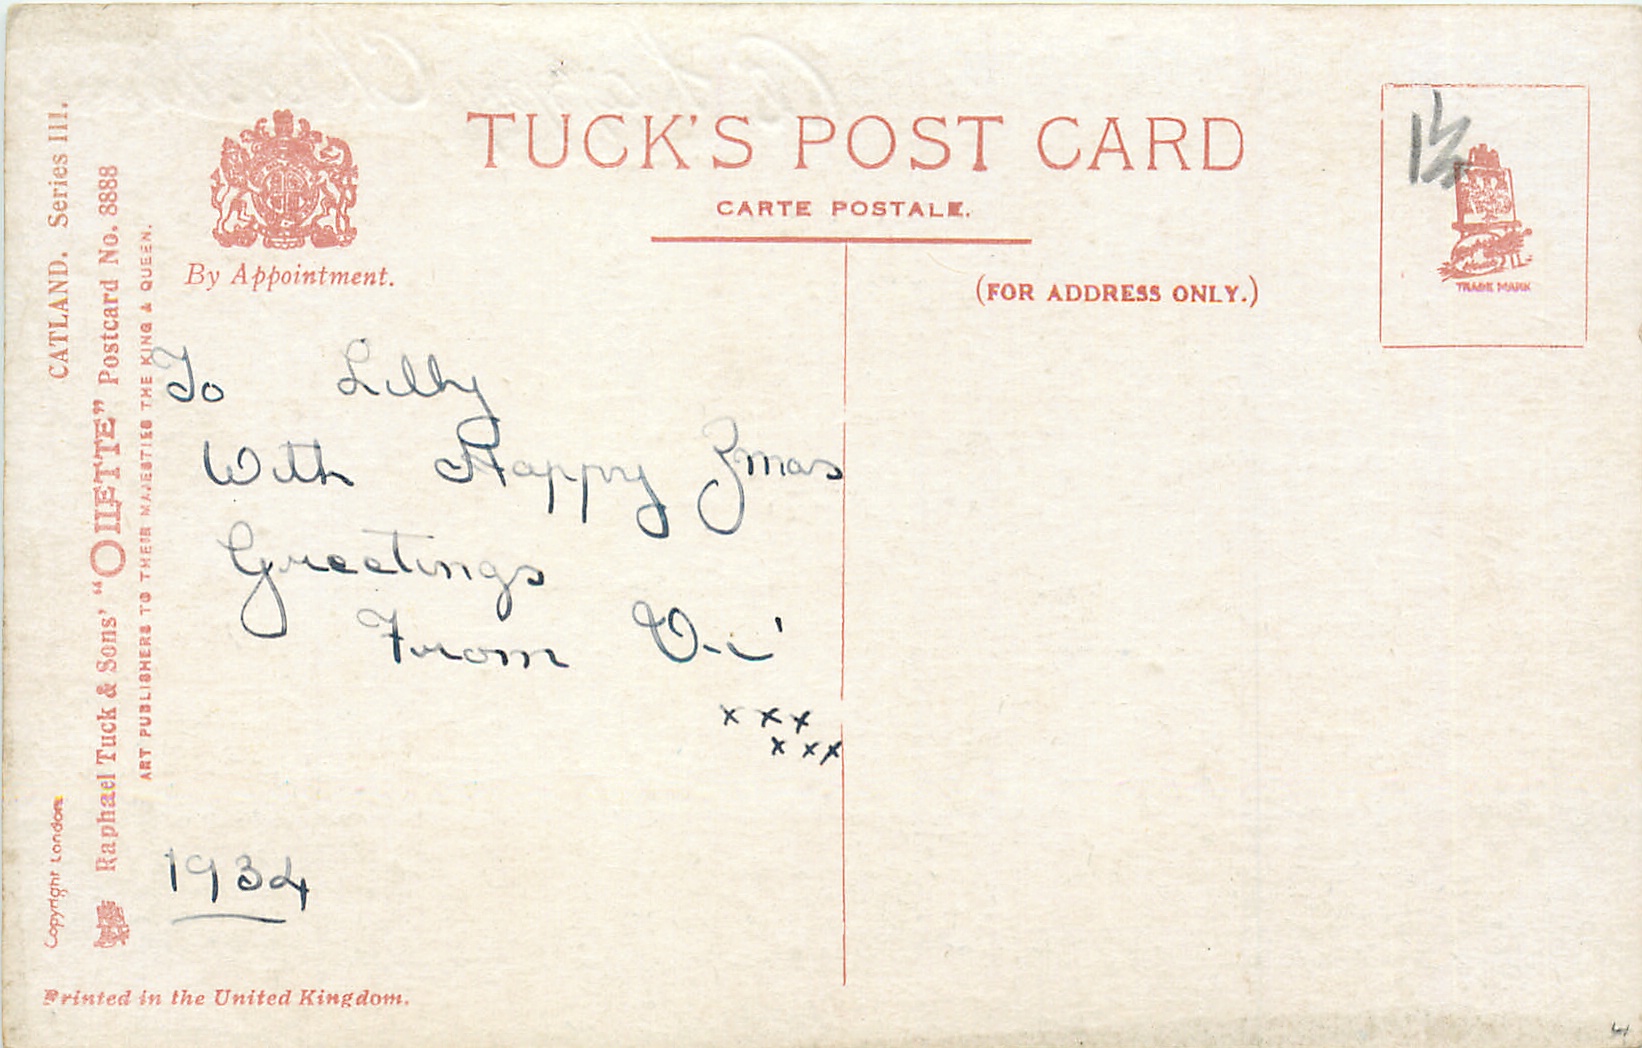 CATLAND. Series III.
Raphael Tuck & Sons' "OILETTE" Postcard No. 8888
ART PUBLISHERS TO THEIR MAJESTIES THE KING & QUEEN.
Copyright London
By Appointment.
TUCK'S POST CARD
CARTE POSTALE.
(FOR ADDRESS ONLY.)
TRADE MARK
To Lilly
With Happy Xmas
Greetings
From Vi'
x x x
x x x
1934
Printed in the United Kingdom.